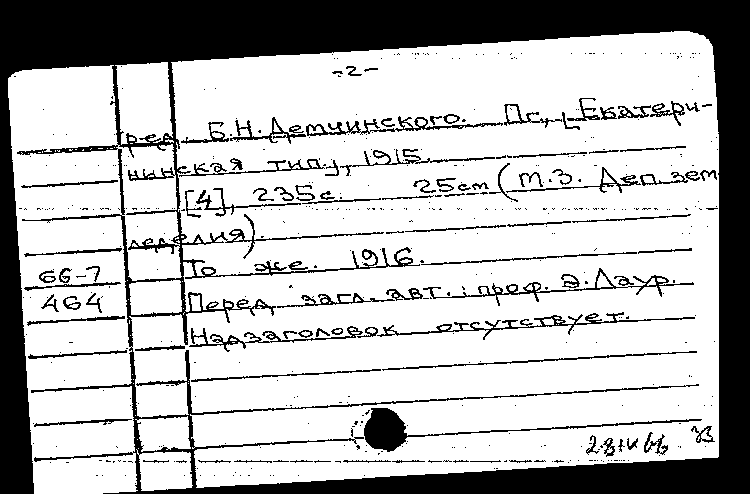 -2-
ред. Б.Н.Демчинского. Пг., [Екатери-
нинская тип.], 1915.
[4], 235с. 25cm (М.З. Деп. зем
леделия).
66-7 То же. 1916.
464 Перед загл. авт.: проф. Э.Лаур.
Надзаголовок отсутствует.